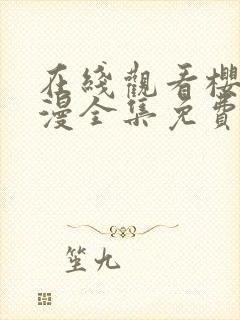 在綫觀看櫻
漫全集免費
笙九